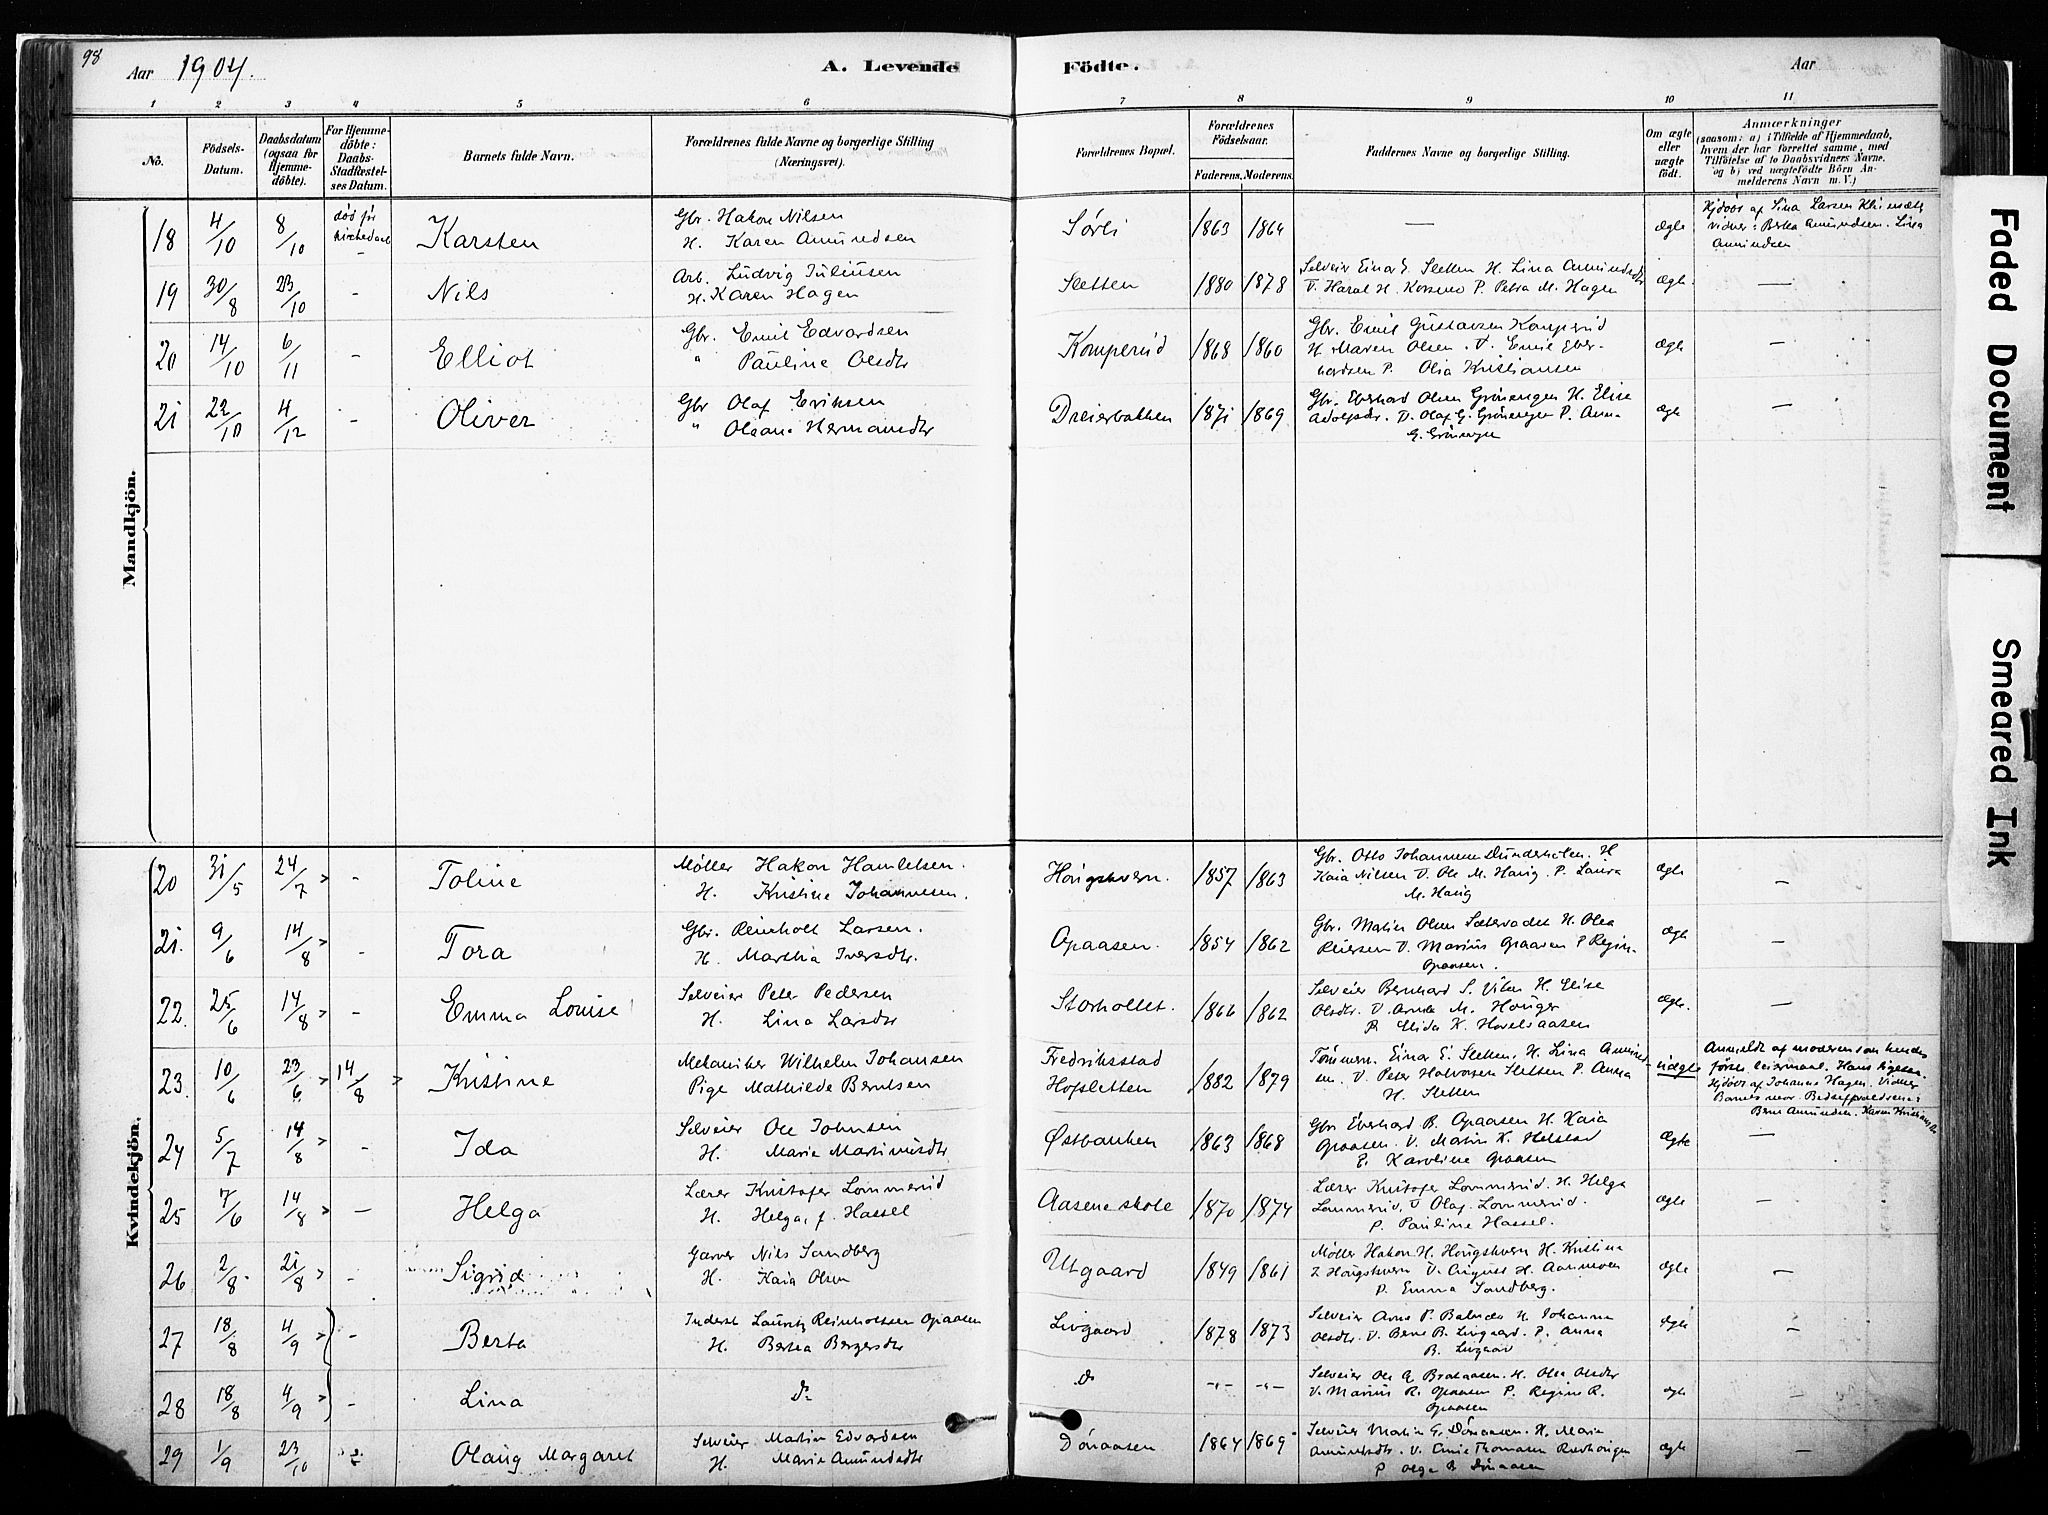 98
Aar 1904.
A. Levende Födte.
Aar
1 2 3 4 5 6 7 8 9 10 11
No.
Födsels-Datum.
Daabsdatum (ogsaa for Hjemme-döbte).
For Hjemme-döbte: Daabs-Stadfæstel-ses Datum.
Barnets fulde Navn.
Forældrenes fulde Navne og borgerlige Stilling (Næringsvei).
Forældrenes Bopæl.
Forældrenes Födselsaar.
Faderens. Moderens.
Faddernes Navne og borgerlige Stilling.
Om ægte eller uægte födt.
Anmærkninger
(saasom: a) i Tilfælde af Hjemmedaab,
hvem der har forrettet samme, med
Tilföielse af to Daabsvidners Navne,
og b) ved uægtefödte Börn An-
melderens Navn m. V.)
Mandkjön.
18 4/10 8/10 död før Karsten Gbr. Hakon Nilsen
H. Karen Amundsen Sørli 1863 1864 — ægte Hjdöbt af Lina Larsen
vidner: Berta Amundsen. Lina
Amundsen
19 30/8 23/10 - Nils Arb. Ludvig Juliusen
H. Karen Hagen Sletten 1880 1878 Selveier Einar E. Sletten H. Lina Amundsdtr
V. Haral H. Korsmo P. Petra M. Hagen ægte —
20 14/10 6/11 - Elliot Gbr. Emil Edvardsen
" Pauline Olsdtr Komperud 1868 1860 Gbr. Emil Gustavsen Komperud
H. Maren Olsen. V. Emil Gber-
hardsen P. Olia Kristiansen ægte —
21 22/10 4/12 - Oliver Gbr Olaf Eriksen
" Oleane Hermansdtr Dreierbakken 1871 1869 Gbr. Eberhard Olsen Gröningen H. Elise
Adolfsdr. V. Olaf G. Gröningen P. Anna
G. Gröningen ægte —
Kvindekjön.
20 31/5 24/7 - Toline Möller Hakon Hamletsen.
H. Kristine Johannesen. Höugskvern. 1857 1863 Gbr. Otto Johannesen Dunderholen. H
Kaia Nilsen V. Ole M. Haug. P. Laura
M. Haug ægte —
21. 9/6 14/8 - Tora Gbr. Reinholt Larsen.
H. Marthia Iversdtr. Opaasen. 1854 1862 Gbr. Martin Olsen Sætervadet H. Olea
Reiersen V. Marius Opaasen P Regin-
Opaasen. ægte —
22. 25/6 14/8 - Emma Louise Selveier Peter Pedersen
H. Lina Larsdtr Storholtet. 1866 1862 Selveier Bernhard S. Viken H. Elise
Olsdtr. V. Arnt M. Hauger
P. Elida K. Hovelsaasen ægte. —
23. 10/6 23/6 14/8 Kristine Mekaniker Wilhelm Johansen
Pige Mathilde Berntsen Fredriksstad
Hofsletten 1882 1879 Tömmerm. Einar E. Sletten. H. Lina Amund-
sen. V. Peter Halvorsen Sletten P. Anna
H. Sletten uægte Anmeldt af moderen som hendes
förste leiermaal. Hans ligesaa.
Hjdöbt af Johanne Hagen. Vidner
Barnets mor. Bedsteforældrene:
Bernt Amundsen. Karen Kristiansdtr
24 5/7 14/8 - Ida Selveier Ole Johnsen
H. Marie Martinusdtr Østbanken 1863 1868 Gbr Eberhard B. Opaasen H. Kaia
Opaasen. V. Martin K. Helstad
P. Karoline Opaasen ægte —
25 7/6 14/8 — Helga Lærer Kristofer Lommerud
H. Helga, f. Hassel Aasene skole 1870 1874 Lærer Kristofer Lommerud. H. Helga
Lommerud, V Olaf Lommerud.
P. Pauline Hassel. ægte —
26 2/8 21/8 - Sigrid Garver Nils Sandberg
H. Kaia Olsen Utgaard 1849 1861 Möller Hakon H. Höugskvern H. Kristina
J. Höugskvern V. August H. Aanmoen
P. Emma Sandberg. ægte —
27 18/8 4/9 - Berta Inderst Lauritz Reinholtsen Opaasen
H. Berthea Bergersdtr Livgaard 1878 1873 Selveier Arne P. H. Johanna
Olsdtr. V. Bernt B. Livgaard. P. Anna
B. Livgaard ægte —
28 18/8 4/9 - Lina do do -"- -"- Selveier Ole G. Braataasen. H. Olia Olsdtr
V. Marius R. Opaasen P. Regine R.
Opaasen ægte —
29 1/9 23/10 Olaug Margaret Selveier Martin Edvardsen
H. Marie Amundsdtr Dönaasen 1864 1869 Selveier Martin E. Dönaasen. H. Marie
Amundsdtr. V. Thomasen
P Olga B Dönaasen ægte —
Faded Document
Smeared Ink